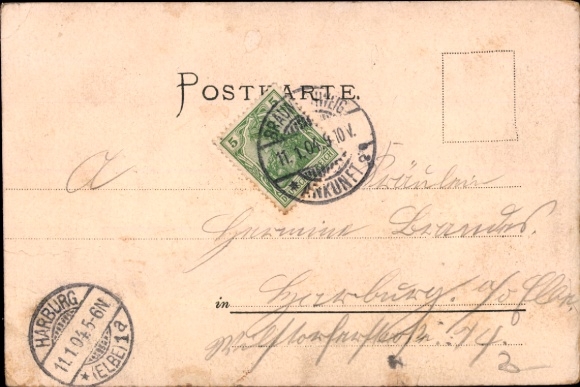 POSTKARTE.
5 5
BRAUNSCHWEIG
11.1.04.9-10V.
* ANKUNFT a
A Fräulein
Hermine Brandes.
in Harburg. a/d Elbe.
HARBURG
11.1.04.5-6N.
* (ELBE) 1a